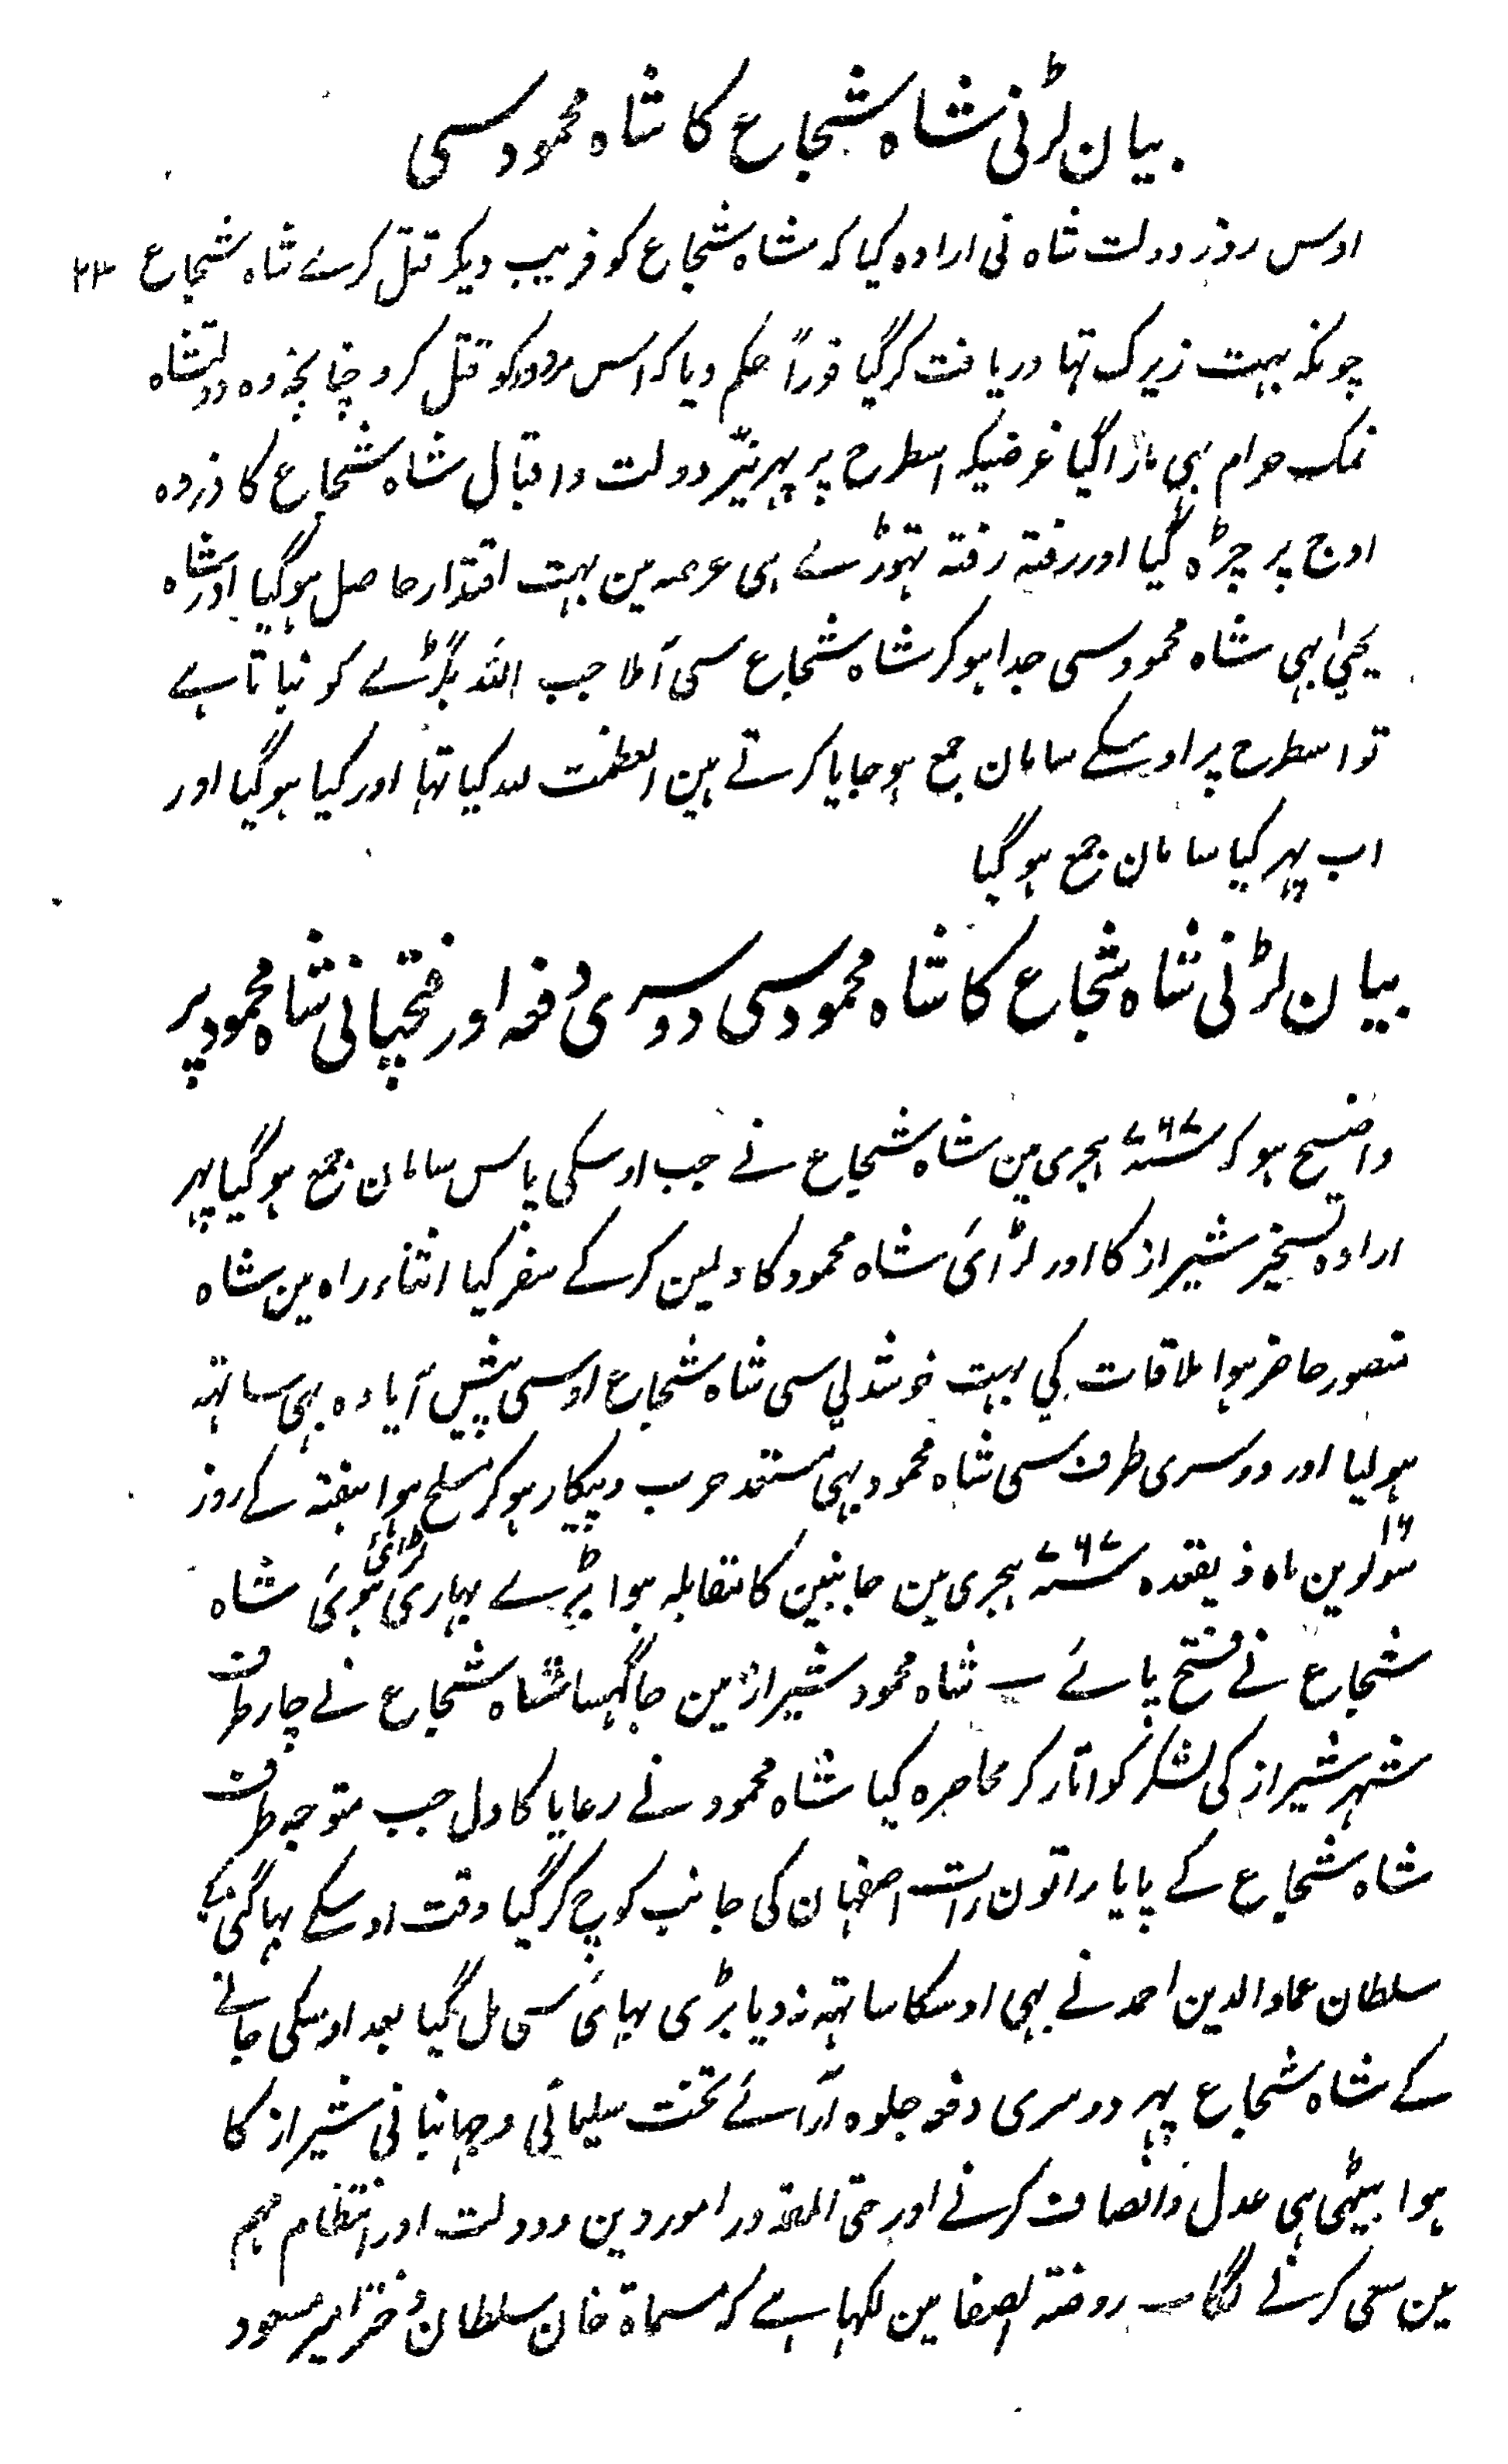 بیان لڑنی شاہ شجاع کا شاہ محمود سی
اوس روز دولت شاہ نی ارادہ کیا کہ شاہ شجاع کو فریب دیکر قتل کرے شاہ شجاع
چونکہ بہت زیرک تہا دریافت کر گیا فوراً حکم دیا کہ اس مردود کو قتل کرو چنانچہ وہ دولتشاہ
نمک حرام بہی مارا گیا غرضیکہ اسطرح پر پہر نیّر دولت و اقبال شاہ شجاع کا ذروہ
اوج پر چڑہ گیا اور رفتہ رفتہ تہوڑے ہی عرصہ مین بہت اقتدار حاصل ہوگیا اور شاہ
یحییٰ بہی شاہ محمود سی جدا ہوکر شاہ شجاع سی آملا جب اللہ بگڑے کو بناتا ہے
تو اسطرح پر اوسکے سامان جمع ہوجایا کرتے ہین العظمت للہ کیا تہا اور کیا ہوگیا اور
اب پہر کیا سامان جمع ہو گیا
بیان لڑنی شاہ شجاع کا شاہ محمود سی دوسری دفعہ اور فتحپانی شاہ محمود پر
واضح ہو کہ سنہ ۷۶۷ ہجری مین شاہ شجاع نے جب اوسکی پاس سامان جمع ہو گیا پہر
ارادہ تسخیر شیراز کا اور لڑائی شاہ محمود کا دلمین کرکے سفر کیا اثناء راہ مین شاہ
منصور حاضر ہوا ملاقات کی بہت خوشدلی سی شاہ شجاع اوسی پیش آیا وہ بہی ساتہہ
ہولیا اور دوسری طرف سی شاہ محمود بہی مستعد حرب و پیکار ہوکر مسلح ہوا ہفتہ کے روز
۱۶ سولوین ماہ ذیقعدہ سنہ ۷۶۷ ہجری مین جانبین کا مقابلہ ہوا بڑے بہاری لڑائی ہوئی شاہ
شجاع نے فتح پائے شاہ محمود شیراز مین جا گہسا شاہ شجاع نے چار طرف
شہر شیراز کی لشکر کو اتار کر محاصرہ کیا شاہ محمود نے رعایا کا دل جب متوجہ طرف
شاہ شجاع کے پایا راتون رات اصفہان کی جانب کوچ کر گیا وقت اوسکے بہاگنی کے
سلطان عماد الدین احمد نے بہی اوسکا ساتہہ نہ دیا بڑی بہائی سی مل گیا بعد اوسکی جانے
کے شاہ شجاع پہر دوسری دفعہ جلوہ آرائے تخت سلیمانی و جہانبانی شیراز کا
ہوا بیٹہی ہی عدل و انصاف کرنے اور حتی المقدور امور دین و دولت اور انتظام مہم
مین سعی کرنے لگا روضۃ الصفا مین لکہا ہے کہ مسماۃ خان سلطان دختر امیر مسعود